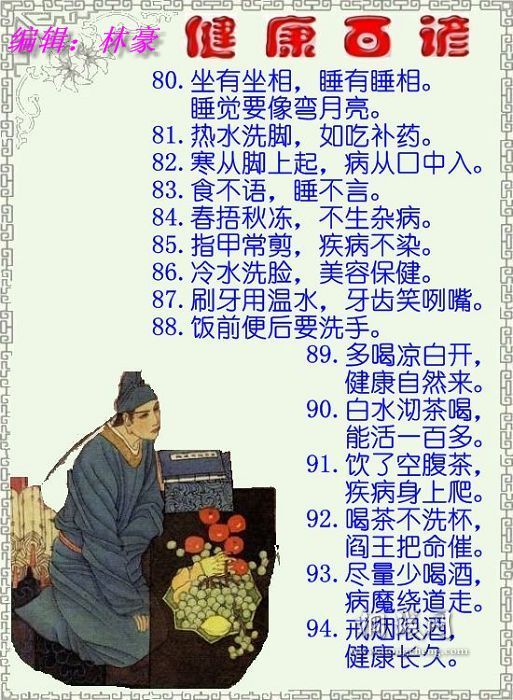 编辑：林豪
健康百谚
80. 坐有坐相，睡有睡相。
睡觉要像弯月亮。
81. 热水洗脚，如吃补药。
82. 寒从脚上起，病从口中入。
83. 食不语，睡不言。
84. 春捂秋冻，不生杂病。
85. 指甲常剪，疾病不染。
86. 冷水洗脸，美容保健。
87. 刷牙用温水，牙齿笑咧嘴。
88. 饭前便后要洗手。
89. 多喝凉白开，
健康自然来。
90. 白水沏茶喝，
能活一百多。
91. 饮了空腹茶，
疾病身上爬。
92. 喝茶不洗杯，
阎王把命催。
93. 尽量少喝酒，
病魔绕道走。
94. 戒烟限酒，
健康长久。